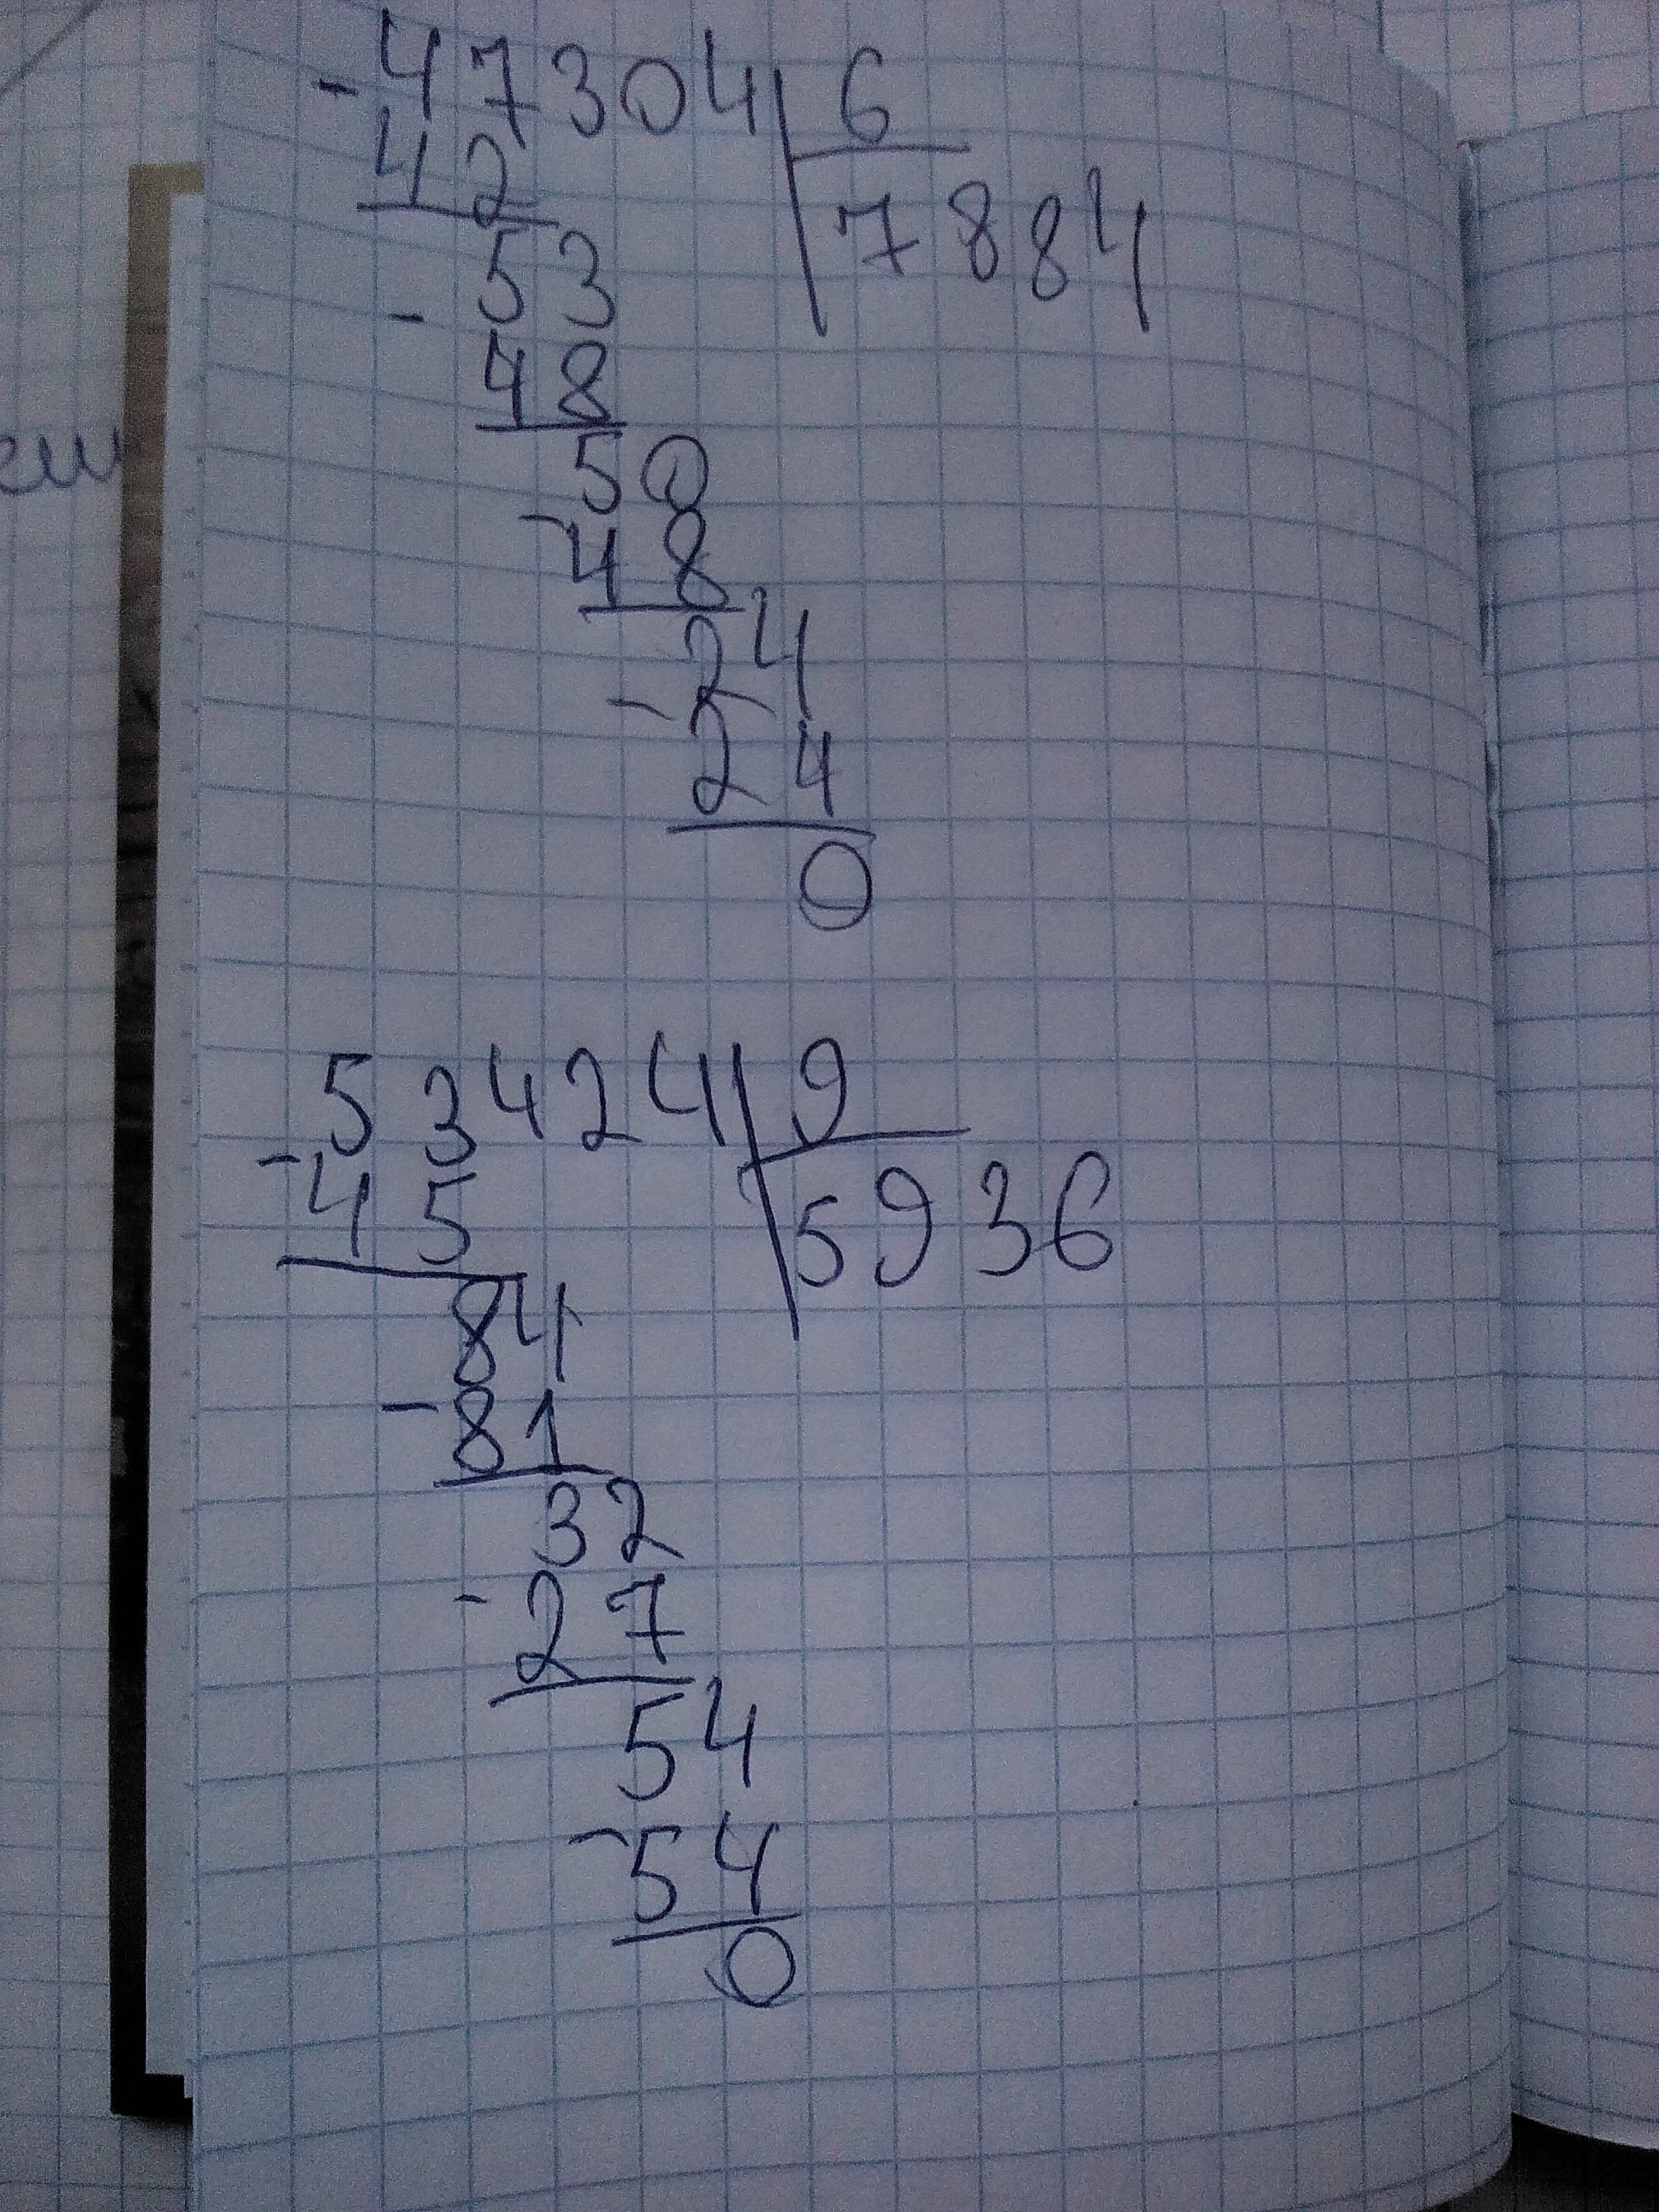 -47304|6
42 7884
-53
48
50
-48
24
-24
0
53424|9
-45 5936
84
-81
32
-27
54
-54
0